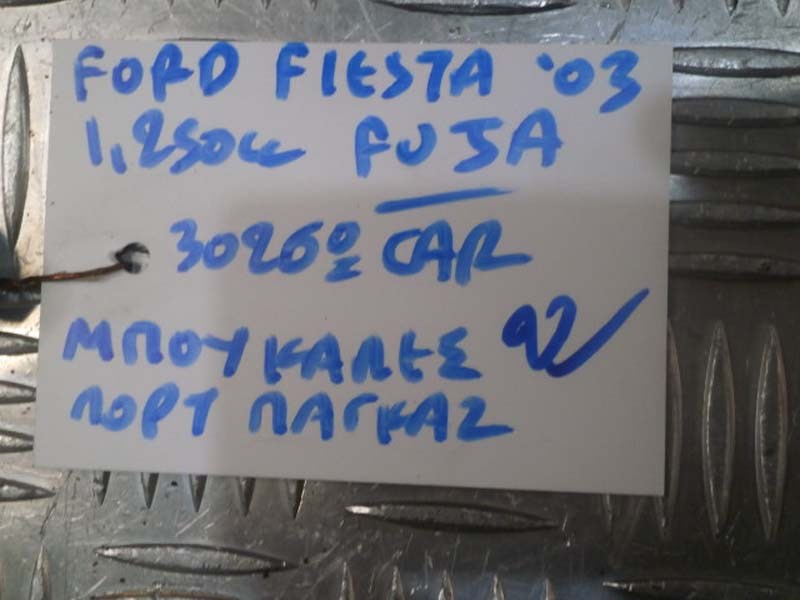 FORD FIESTA '03
1,250cc FUJA
30260 CAR
ΜΠΟΥΚΑΛΕΣ 92
ΠΟΡΤ ΠΑΓΚΑΖ